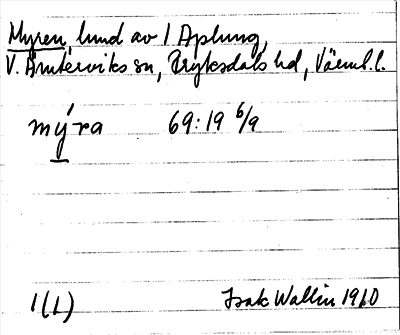 Myren, lund av 1 Aplung,
V. Ämterviks sn, Fryksdals hd, Värml. l.
mýra 69:19 6/9
1(1) Isak Wallin 1910